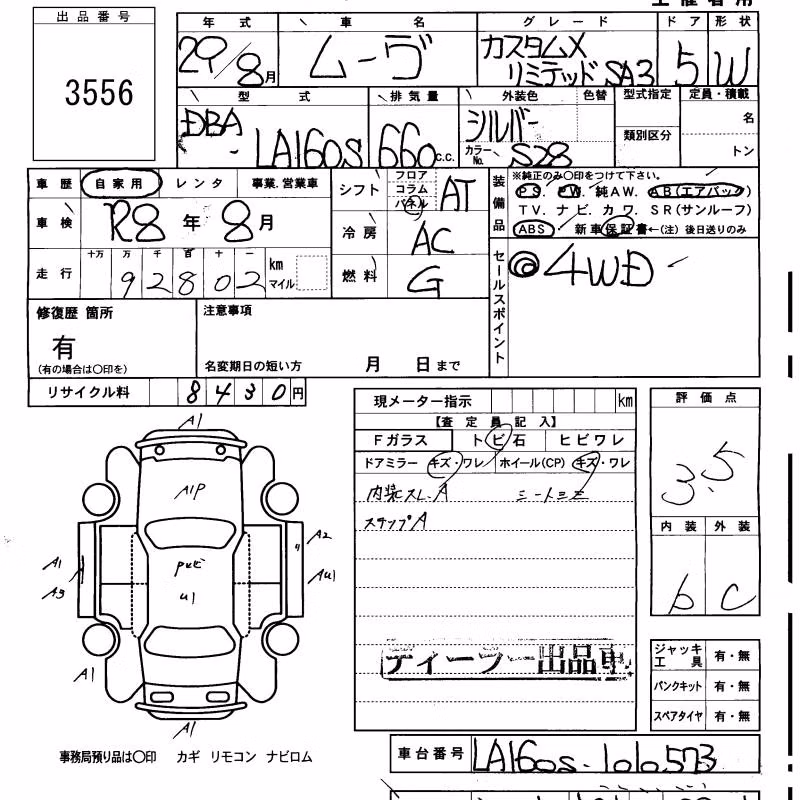 出品番号
3556
年式 車名 グレード ドア 形状
29/8月 ムーヴ カスタムX リミテッド SA3 5 W
型式 排気量 外装色 色替 型式指定 定員・積載
DBA-LA160S 660c.c. シルバー カラーNo. S28 類別区分 名 トン
車歴 自家用 レンタ 事業.営業車
車検 R8年8月
走行 十万 万 千 百 十 一
92802 km マイル
シフト フロア コラム パネル AT
冷房 AC
燃料 G
装備品 ※純正のみ○印をつけて下さい。
PS. PW. 純AW. AB(エアバック)
TV. ナビ. カワ. SR(サンルーフ)
ABS 新車保証書←(注) 後日送りのみ
セールスポイント ◎4WD
修復歴 箇所
有
(有の場合は○印を)
注意事項
名変期日の短い方 月 日まで
リサイクル料 8430円
現メーター指示 km
【査定員記入】
Fガラス トビ石 ヒビワレ
ドアミラー キズ・ワレ ホイール(CP) キズ・ワレ
内装スレ.A シートコゲ
ステップA
ディーラー出品車
評価点
3.5
内装 外装
b C
ジャッキ工具 有・無
パンクキット 有・無
スペアタイヤ 有・無
A1
A1P
A1
A3
A2
AU1
U1
A1
A1
事務局預り品は○印 カギ リモコン ナビロム
車台番号 LA160S-1010573